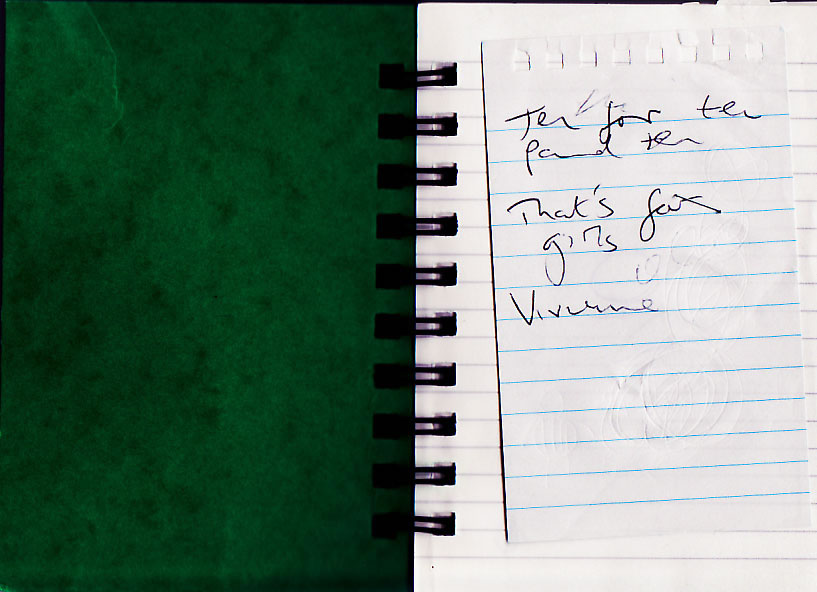 Ten for ten
pound ten
That's for
girls
Vivienne